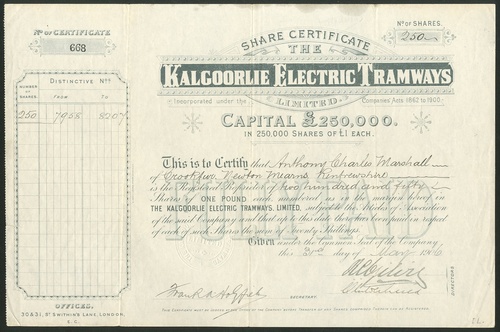 No OF CERTIFICATE
668
No OF SHARES.
250
SHARE CERTIFICATE
THE
KALGOORLIE ELECTRIC TRAMWAYS
LIMITED.
Incorporated under the Companies' Acts 1862 to 1900.
CAPITAL £250,000.
IN 250,000 SHARES OF £1 EACH.
DISTINCTIVE Nos
NUMBER OF SHARES
FROM
TO
250 7958 8207
This is to Certify that Anthony Charles Marshall
of Crookfur, Newton Mearns, Renfrewshire
is the Registered Proprietor of Two hundred and fifty
Shares of ONE POUND each, numbered as in the margin hereof in
THE KALGOORLIE ELECTRIC TRAMWAYS, LIMITED, subject to the Articles of Association
of the said Company and that up to this date there has been paid in respect
of each of such Shares the sum of Twenty Shillings.
Given under the Common Seal of the Company,
this day of May
DIRECTORS
SECRETARY
OFFICES.
30 & 31, ST SWITHIN'S LANE, LONDON,
E.C.